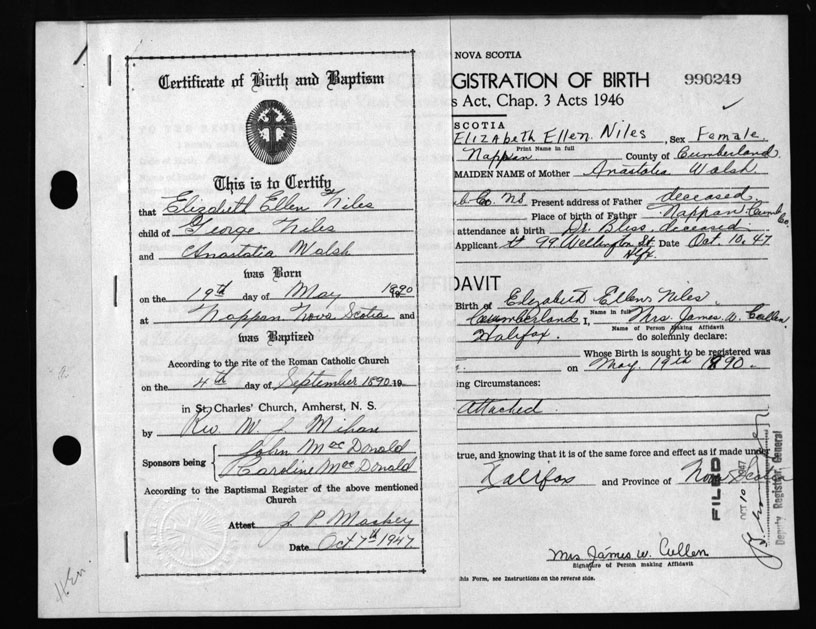 Certificate of Birth and Baptism
This is to Certify
that Elizabeth Ellen Niles
child of George Niles
and Anastatia Walsh
was Born
on the 19th day of May 1890
at Nappan Nova Scotia and
was Baptized
According to the rite of the Roman Catholic Church
on the 4th day of September 1890 19
in St. Charles' Church, Amherst, N. S.
by Rev W. J. Mihan
Sponsors being John MacDonald
Caroline MacDonald
According to the Baptismal Register of the above mentioned
Church
Attest J P Mackey
Date Oct 7th 1947
NOVA SCOTIA
GISTRATION OF BIRTH 990249
s Act, Chap. 3 Acts 1946
SCOTIA
Elizabeth Ellen Niles, Sex Female
Print Name in full
Nappan County of Cumberland
MAIDEN NAME of Mother Anastatia Walsh
b. Co. NS. Present address of Father deceased
Place of birth of Father Nappan Cumb Co.
attendance at birth Dr. Bliss, deceased
Applicant at 99 Wellington St. Hfx. Date Oct. 10, 47
DAVIT
Birth of Elizabeth Ellen Niles
Name in full
Cumberland I, Mrs. James W. Cullen
Name of Person making Affidavit
Halifax. do solemnly declare:
Whose Birth is sought to be registered was
on May 19th 1890
ing Circumstances:
Attached
true, and knowing that it is of the same force and effect as if made under
Halifax and Province of Nova Scotia
FILED
OCT 10 1947
Deputy Registrar General
Mrs James W. Cullen
Signature of Person making Affidavit
his Form, see Instructions on the reverse side.